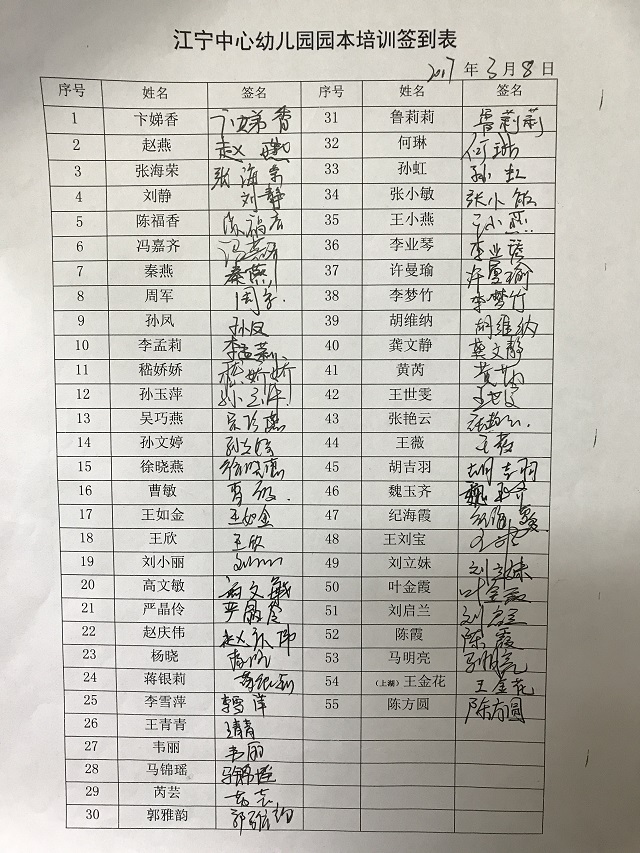 江宁中心幼儿园园本培训签到表
2017 年 3 月 8 日
序号 姓名 签名 序号 姓名 签名
1 卞娣香 卞娣香 31 鲁莉莉 鲁莉莉
2 赵燕 赵燕 32 何琳 何琳
3 张海荣 张海荣 33 孙虹 孙虹
4 刘静 刘静 34 张小敏 张小敏
5 陈福香 陈福香 35 王小燕 王小燕
6 冯嘉齐 冯嘉齐 36 李业琴 李业琴
7 秦燕 秦燕 37 许曼瑜 许曼瑜
8 周军 周军 38 李梦竹 李梦竹
9 孙凤 孙凤 39 胡维纳 胡维纳
10 李孟莉 李孟莉 40 龚文静 龚文静
11 嵇娇娇 嵇娇娇 41 黄芮 黄芮
12 孙玉萍 孙玉萍 42 王世雯 王世雯
13 吴巧燕 吴巧燕 43 张艳云
14 孙文婷 孙文婷 44 王薇 王薇
15 徐晓燕 徐晓燕 45 胡吉羽 胡吉羽
16 曹敏 曹敏 46 魏玉齐 魏玉齐
17 王如金 王如金 47 纪海霞 纪海霞
18 王欣 王欣 48 王刘宝
19 刘小丽 49 刘立妹 刘立妹
20 高文敏 高文敏 50 叶金霞 叶金霞
21 严晶伶 严晶伶 51 刘启兰
22 赵庆伟 赵庆伟 52 陈霞 陈霞
23 杨晓 53 马明亮 马明亮
24 蒋银莉 蒋银莉 54 （上湖）王金花 王金花
25 李雪萍 李雪萍 55 陈方圆 陈方圆
26 王青青 王青青
27 韦丽 韦丽
28 马锦瑶 马锦瑶
29 芮芸 芮芸
30 郭雅韵 郭雅韵